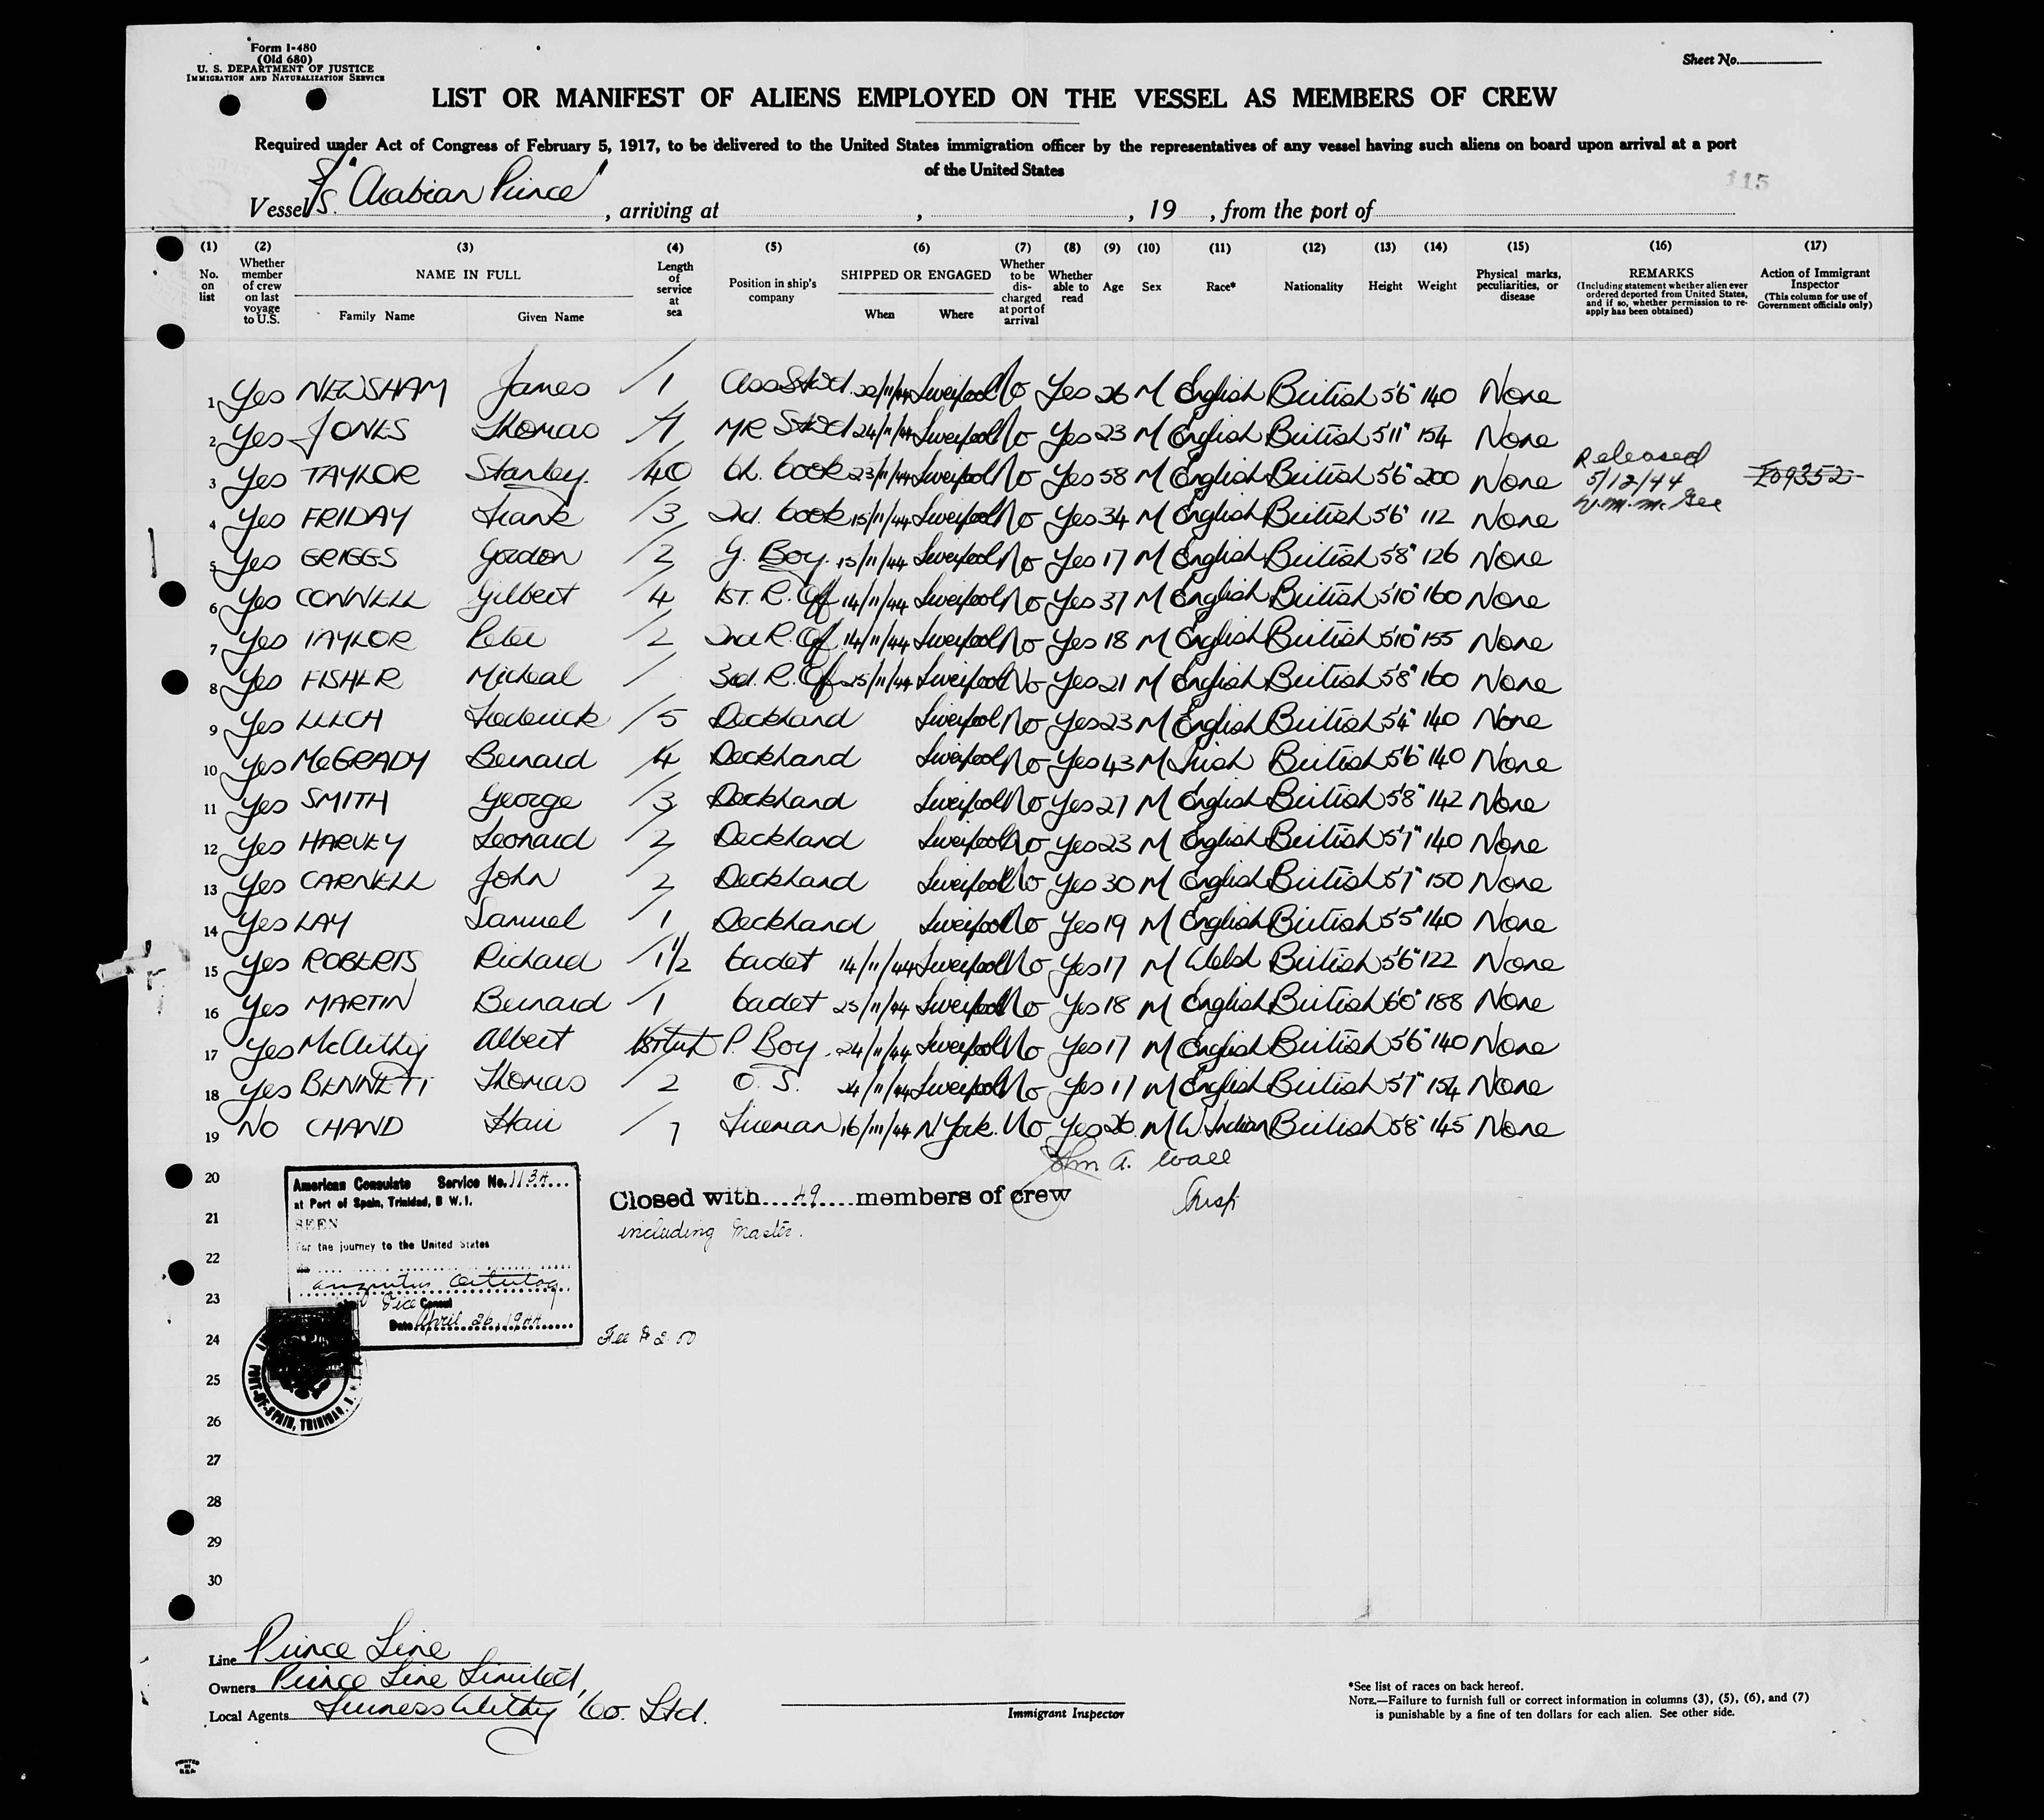 Form I-480
(Old 680)
U. S. DEPARTMENT OF JUSTICE
IMMIGRATION AND NATURALIZATION SERVICE
Sheet No.
LIST OR MANIFEST OF ALIENS EMPLOYED ON THE VESSEL AS MEMBERS OF CREW
Required under Act of Congress of February 5, 1917, to be delivered to the United States immigration officer by the representatives of any vessel having such aliens on board upon arrival at a port
of the United States
115
Vessel S/S. "Arabian Prince", arriving at , , 19 , from the port of
(1) (2) (3) (4) (5) (6) (7) (8) (9) (10) (11) (12) (13) (14) (15) (16) (17)
No. on list
Whether member of crew on last voyage to U.S.
NAME IN FULL
Family Name
Given Name
Length of service at sea
Position in ship's company
SHIPPED OR ENGAGED
When
Where
Whether to be discharged at port of arrival
Whether able to read
Age
Sex
Race*
Nationality
Height
Weight
Physical marks, peculiarities, or disease
REMARKS
(Including statement whether alien ever ordered deported from United States, and if so, whether permission to reapply has been obtained)
Action of Immigrant Inspector
(This column for use of Government officials only)
1 Yes NEWSHAM James 1 Ass Stwd 22/11/44 Liverpool No Yes 26 M English British 5'6" 140 None
2 Yes JONES Thomas MR Stwd 24/11/44 Liverpool No Yes 23 M English British 5'11" 154 None
3 Yes TAYLOR Stanley. 40 Ch. Cook 23/11/44 Liverpool No Yes 58 M English British 5'6" 200 None Released 5/12/44 W.M. McGee I09352
4 Yes FRIDAY Frank 3 2nd. Cook 15/11/44 Liverpool No Yes 34 M English British 5'6" 112 None
5 Yes GRIGGS Gordon 2 G. Boy. 15/11/44 Liverpool No Yes 17 M English British 5'8" 126 None
6 Yes CONNELL Gilbert 4 1ST. R. Off 14/11/44 Liverpool No Yes 37 M English British 5'10" 160 None
7 Yes TAYLOR Peter 2 2nd R. Off 14/11/44 Liverpool No Yes 18 M English British 5'10" 155 None
8 Yes FISHER Micheal 3rd. R. Off 25/11/44 Liverpool No Yes 21 M English British 5'8" 160 None
9 Yes LEECH Frederick 5 Deckhand Liverpool No Yes 23 M English British 5'4" 140 None
10 Yes McGRADY Bernard 4 Deckhand Liverpool No Yes 43 M Irish British 5'6" 140 None
11 Yes SMITH George 3 Deckhand Liverpool No Yes 27 M English British 5'8" 142 None
12 Yes HARVEY Leonard 2 Deckhand Liverpool No Yes 23 M English British 5'7" 140 None
13 Yes CARNELL John 2 Deckhand Liverpool No Yes 30 M English British 5'7" 150 None
14 Yes LAY Samuel 1 Deckhand Liverpool No Yes 19 M English British 5'5" 140 None
15 Yes ROBERTS Richard 1 1/2 Cadet 14/11/44 Liverpool No Yes 17 M Welsh British 5'6" 122 None
16 Yes MARTIN Bernard 1 Cadet 25/11/44 Liverpool No Yes 18 M English British 6'0" 188 None
17 Yes McCarthy Albert 1ST trip P. Boy. 24/11/44 Liverpool No Yes 17 M English British 5'6" 140 None
18 Yes BENNETT Thomas 2 O. S. 24/11/44 Liverpool No Yes 17 M English British 5'7" 154 None
19 No CHAND Hari 7 Fireman 16/111/44 N. York. No Yes 26 M W. Indian British 5'8" 145 None
John A. Wall
20
21
22
23
24
25
26
27
28
29
30
American Consulate Service No. 1134
at Port of Spain, Trinidad, B W.I.
SEEN
For the journey to the United States
Vice Consul
Date April 26, 1944
PORT-OF-SPAIN, TRINIDAD,
Closed with 49 members of crew
including Master.
Fee $ 2.00
Line Prince Line
Owners Prince Line Limited,
Local Agents Furness Withy Co. Ltd.
Immigrant Inspector
*See list of races on back hereof.
NOTE.—Failure to furnish full or correct information in columns (3), (5), (6), and (7)
is punishable by a fine of ten dollars for each alien. See other side.
PRINTED IN U.S.A.